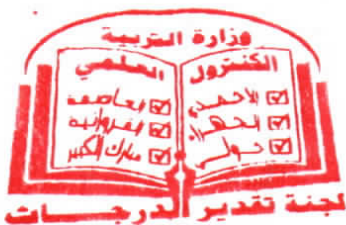 وزارة التربية
الكنترول العلمي
الأحمدي العاصمة
الجهراء الفروانية
حولي مبارك الكبير
لجنة تقدير الدرجات